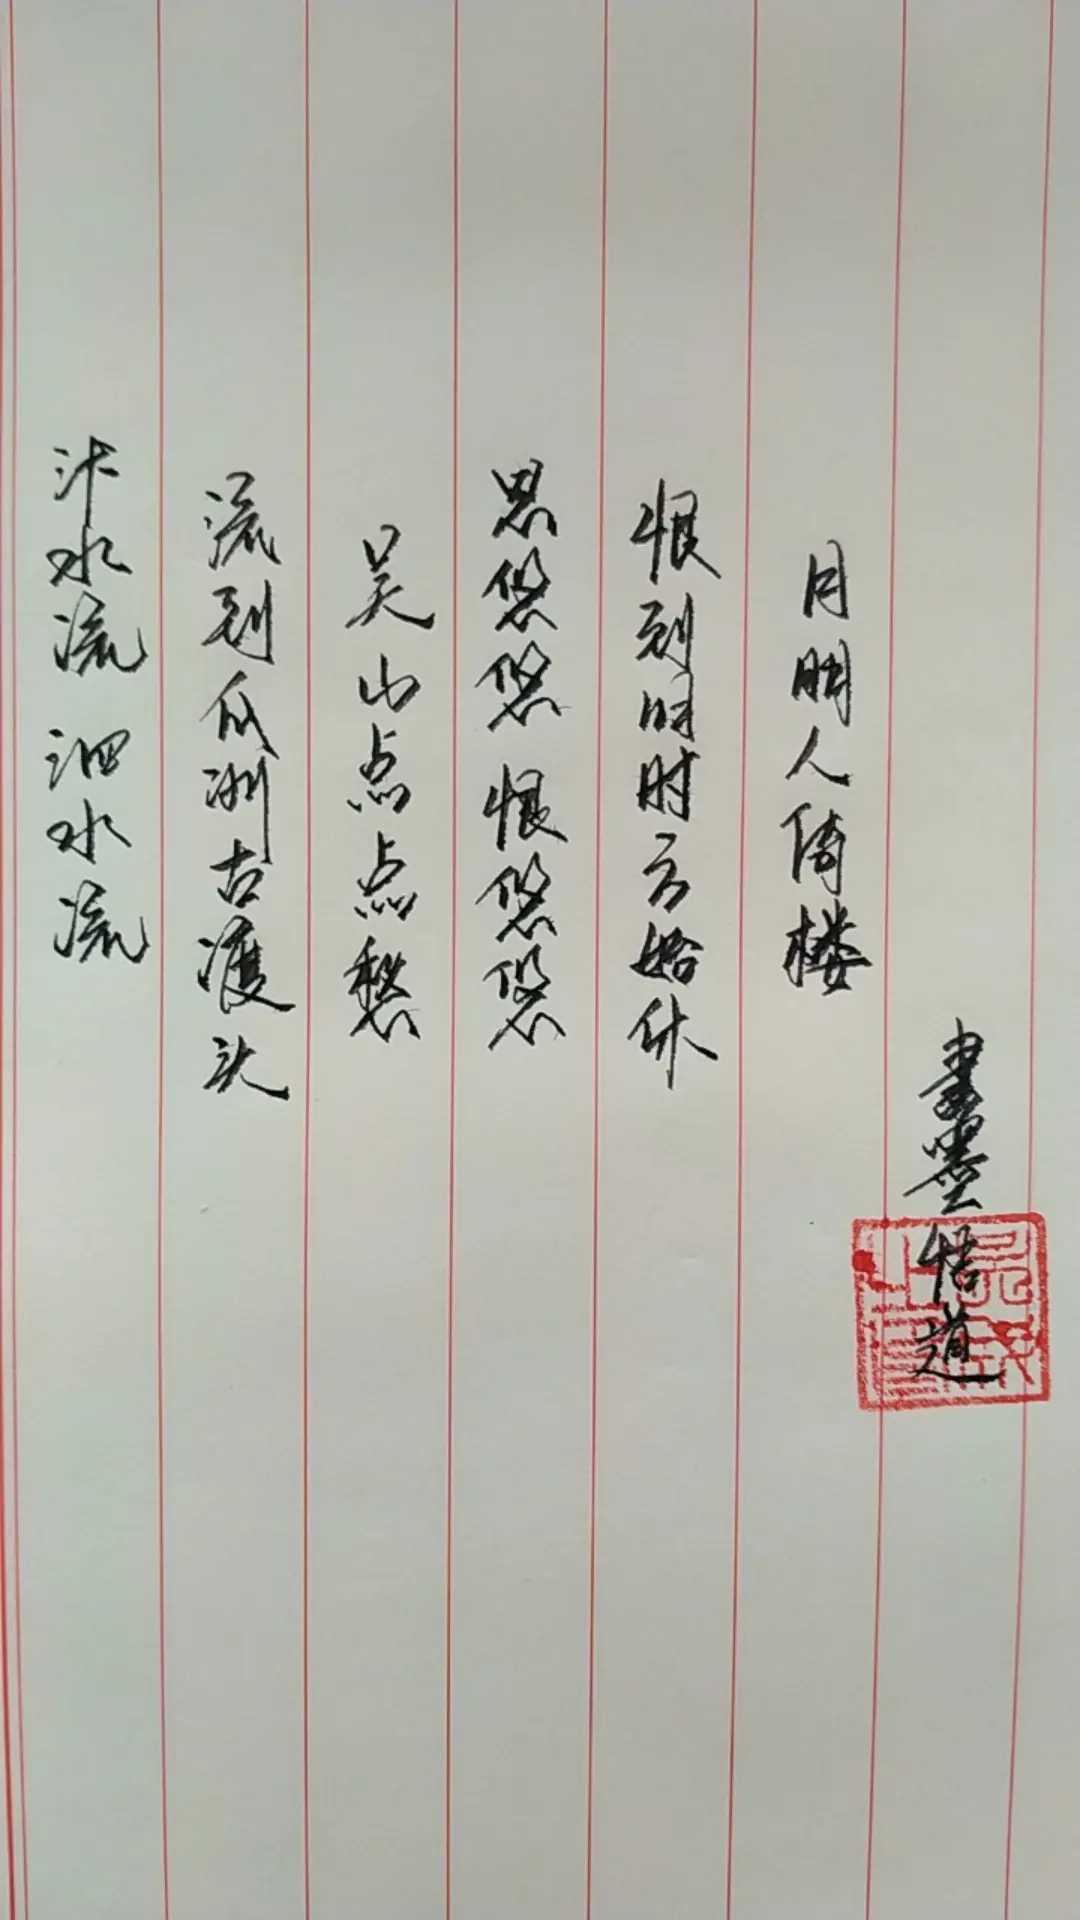 汴水流 泗水流
流到瓜洲古渡头
吴山点点愁
思悠悠 恨悠悠
恨到归时方始休
月明人倚楼
書墨悟道